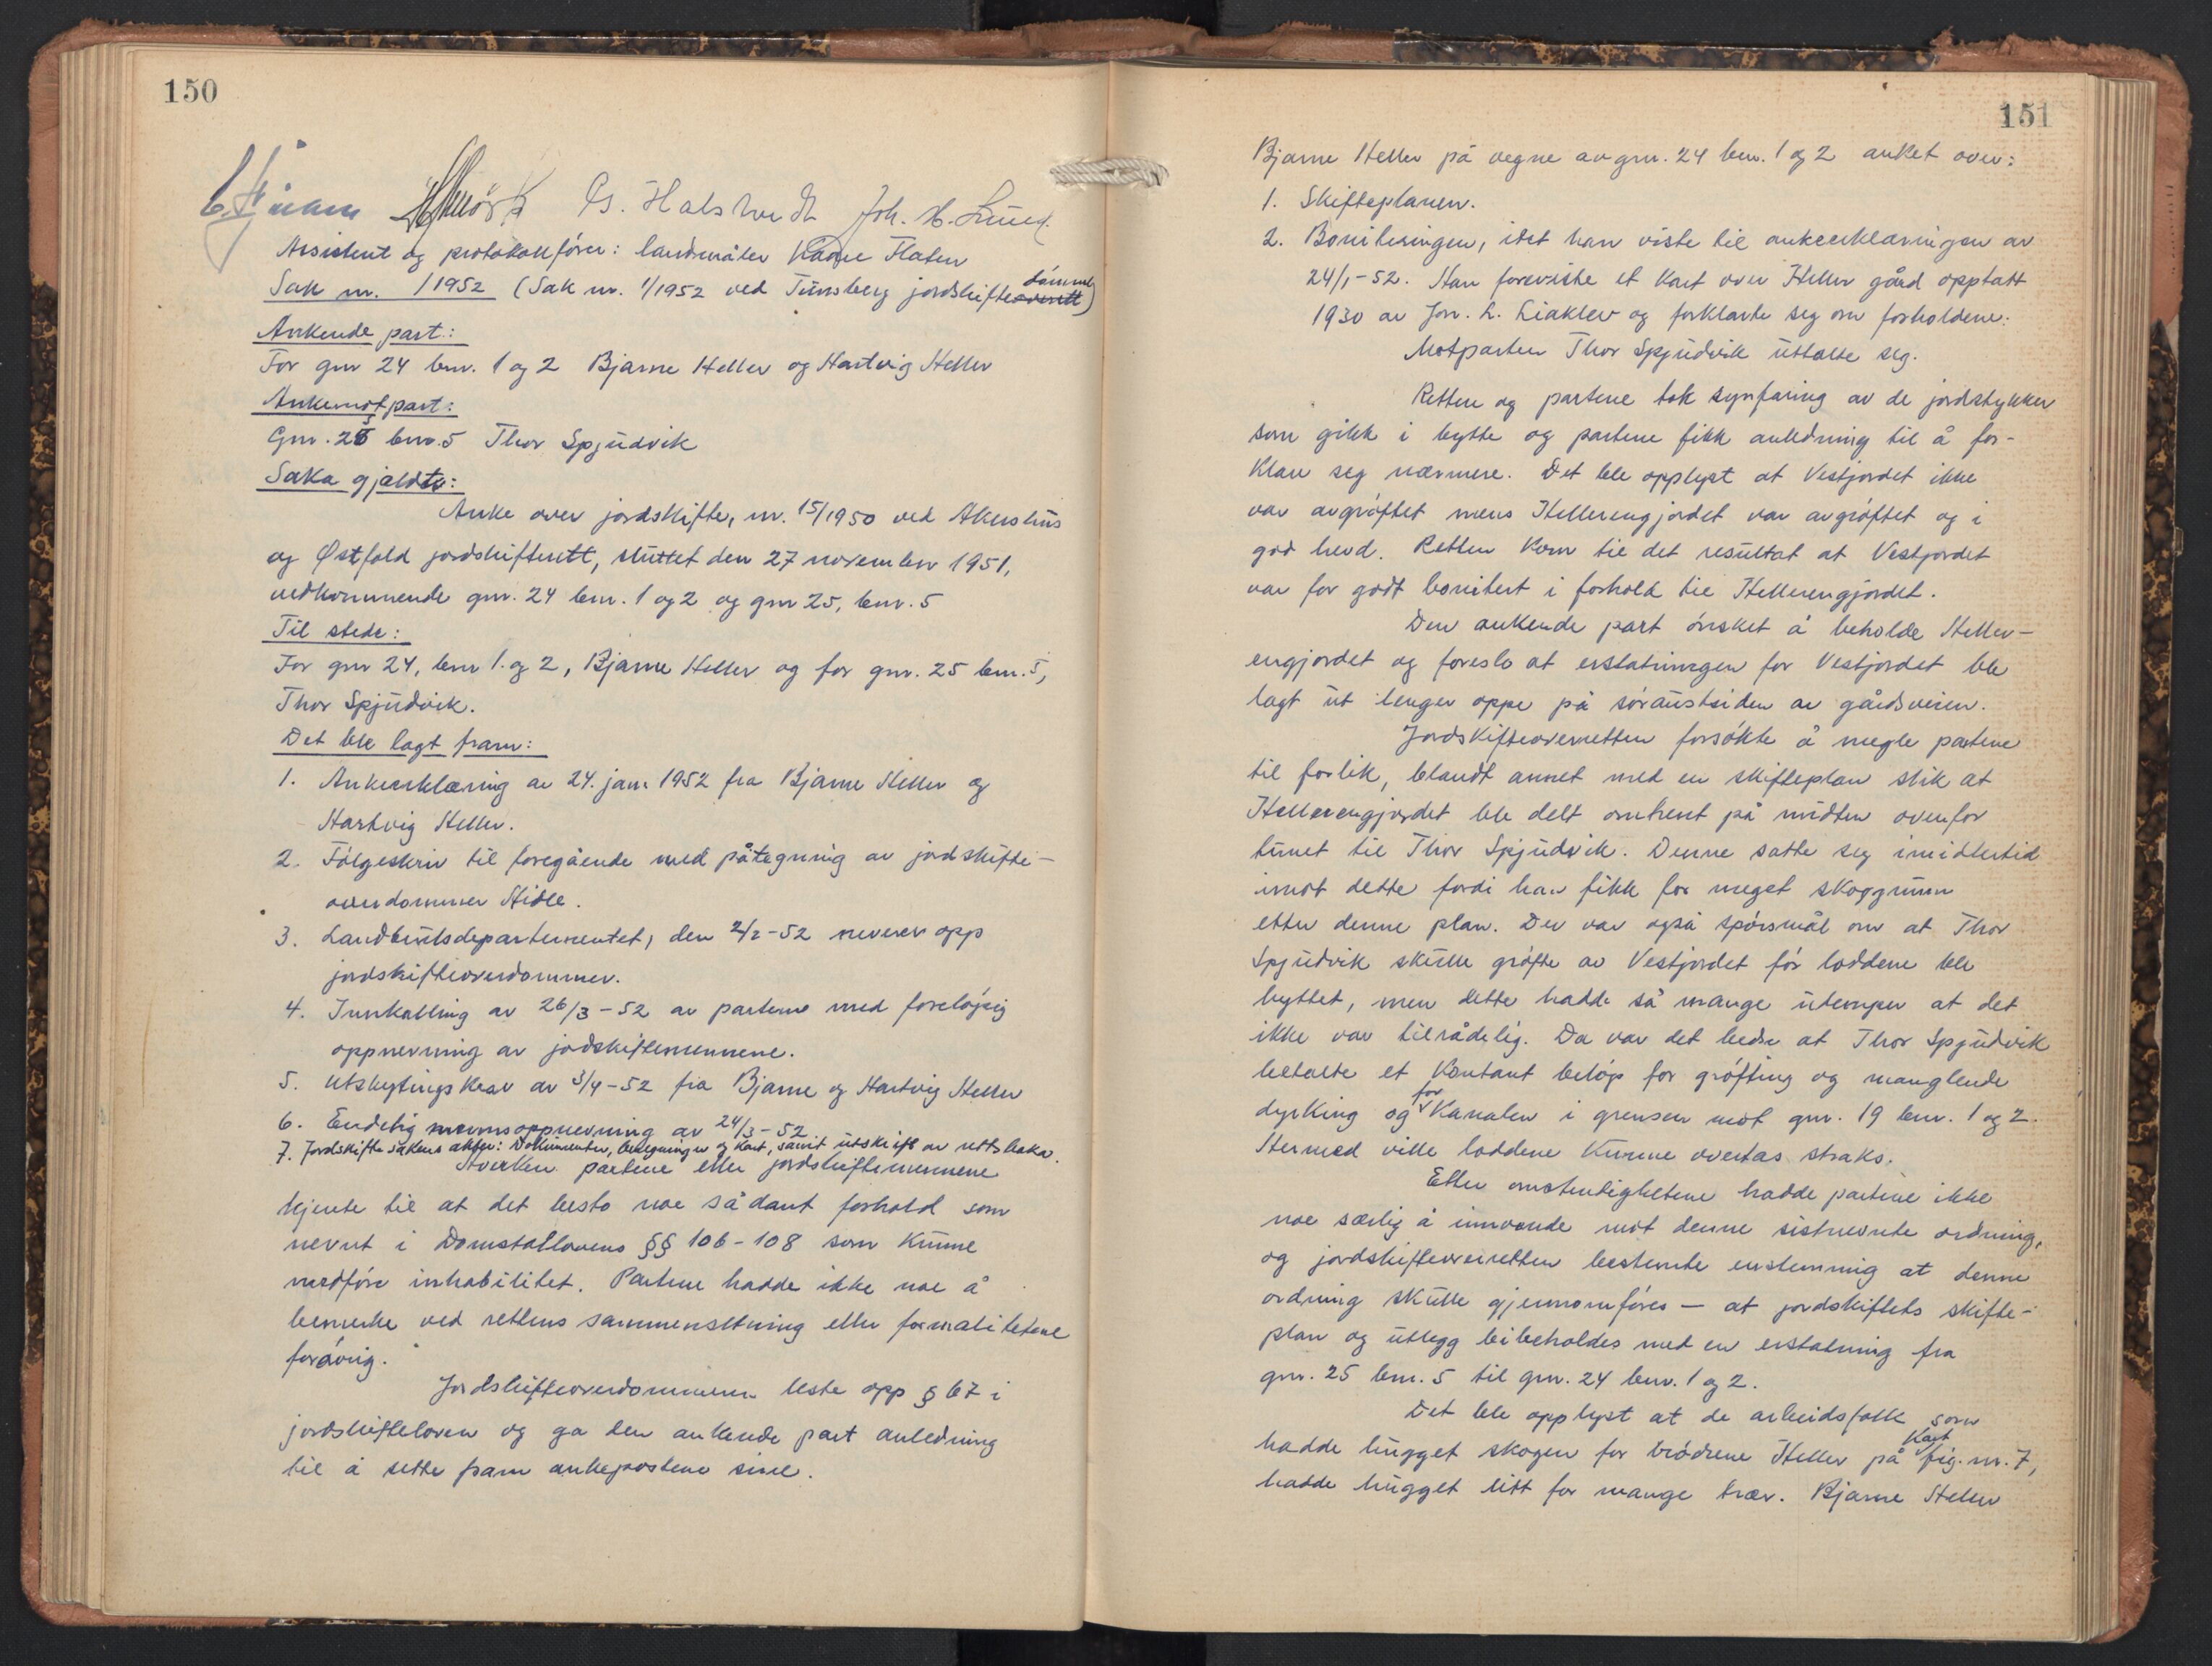 150
As. Halstvedt Joh. H. Lund.
Assistent og protokollfører: landmåler Kåre Flaten
Sak nr. 1/1952 (Sak nr. 1/1952 ved Tunsberg jordskifteoverrett)
dømme
Ankende part:
For gnr 24 bnr. 1 og 2 Bjarne Heller og Hartvig Heller
Ankemotpart:
Gnr. 25 bnr. 5 Thor Spjudvik
Saka gjaldt:
Anke over jordskifte, nr. 15/1950 ved Akershus
og Østfold jordskifterett, sluttet den 27 november 1951,
vedkommende gnr. 24 bnr. 1 og 2 og gnr 25, bnr. 5
Til stede:
For gnr 24, bnr 1. og 2, Bjarne Heller og for gnr. 25 bnr. 5,
Thor Spjudvik.
Det ble lagt fram:
1. Ankeerklæring av 24. jan. 1952 fra Bjarne Heller og
Hartvig Heller.
2. Følgeskriv til foregående med påtegning av jordskifte-
overdommer Hidle.
3. Landbruksdepartementet, den 2/2-52 nevner opp
jordskifteoverdommer.
4. Innkalling av 26/3-52 av partene med foreløpig
oppnevning av jordskiftemennene.
5. Utskytingskrav av 3/4-52 fra Bjarne og Hartvig Heller
6. Endelig mannsoppnevning av 24/3-52
7. Jordskiftesakens akter: Dokumenter, beregninger og kart, samt utskrift av rettsboka.
Hverken partene eller jordskiftemennene
kjente til at det besto noe sådant forhold som
nevnt i Domstollovens §§ 106-108 som kunne
medføre inhabilitet. Partene hadde ikke noe å
bemerke ved rettens sammensetning eller formalitetene
forøvrig.
Jordskifteoverdommeren leste opp § 67 i
jordskifteloven og ga den ankende part anledning
til å sette fram ankepostene sine.
151
Bjarne Heller på vegne av gnr. 24 bnr. 1 og 2 anket over:
1. Skifteplanen.
2. Boniteringen, idet han viste til ankeerklæringen av
24/1-52. Han foreviste et kart over Heller gård opptatt
1930 av Jon. L. Liaklev og forklarte seg om forholdene.
Motparten Thor Spjudvik uttalte seg.
Retten og partene tok synfaring av de jordstykker
som gikk i bytte og partene fikk anledning til å for-
klare seg nærmere. Det ble opplyst at Vestjordet ikke
var avgrøftet mens Hellerengjordet var avgrøftet og i
god hevd. Retten kom til det resultat at Vestjordet
var for godt bonitert i forhold til Hellerengjordet.
Den ankende part ønsket å beholde Heller-
engjordet og foreslo at erstatningen for Vestjordet ble
lagt ut lenger oppe på søraustsiden av gårdsveien.
Jordskifteoverretten forsøkte å megle partene
til forlik, blandt annet med en skifteplan slik at
Hellerengjordet ble delt omtrent på midten ovenfor
tunet til Thor Spjudvik. Denne satte seg imidlertid
imot dette fordi han fikk for meget skoggrunn
etter denne plan. Der var også spørsmål om at Thor
Spjudvik skulle grøfte av Vestjordet før loddene ble
byttet, men dette hadde så mange ulemper at det
ikke var tilrådelig. Da var det bedre at Thor Spjudvik
betalte et kontant beløp for grøfting og manglende
dyrking og for kanalen i grensen mot gnr. 19 bnr. 1 og 2.
Hermed ville loddene kunne overtas straks.
Etter omstendighetene hadde partene ikke
noe særlig å innvende mot denne sistnevnte ordning,
og jordskifteoverretten bestemte enstemmig at denne
ordning skulle gjennomføres — at jordskiftets skifte-
plan og utlegg beibeholdes med en erstatning fra
gnr. 25 bnr. 5 til gnr. 24 bnr. 1 og 2.
Det ble opplyst at de arbeidsfolk som
hadde hugget skogen for brødrene Heller på kart fig. nr. 7,
hadde hugget litt for mange trær. Bjarne Heller